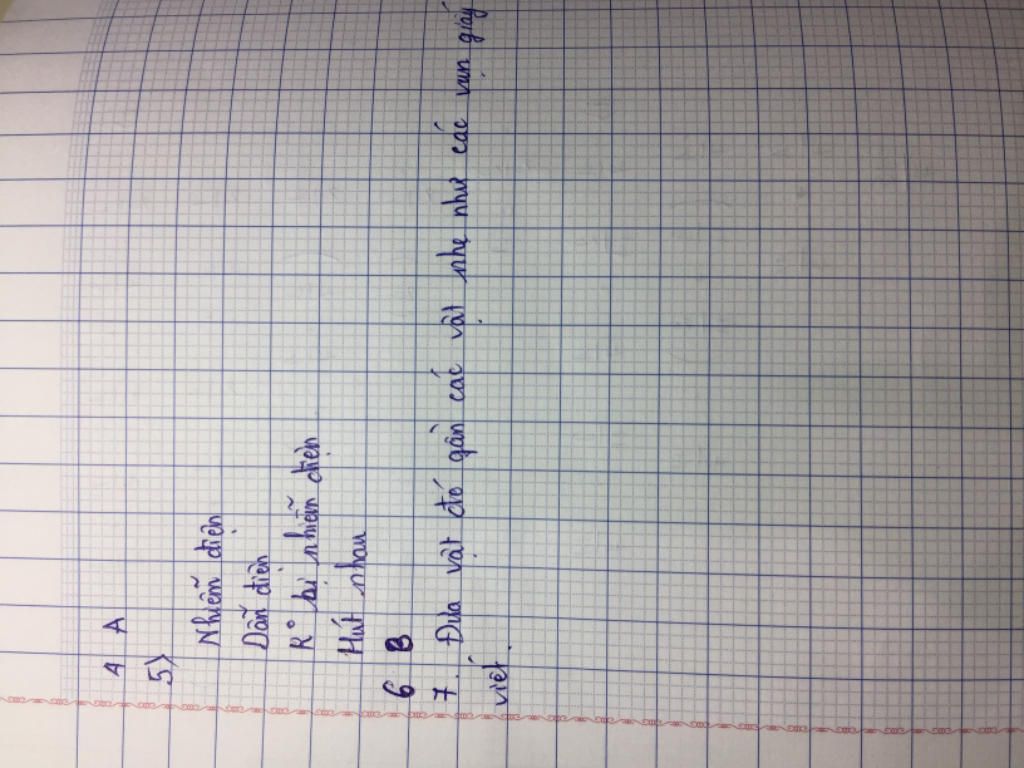 4 A
5)
Nhiễm điện
Dẫn điện
R° bị nhiễm điện
Hút nhau
6 B
7. Đưa vật đó gần các vật nhẹ như các vụn giấy
viết.